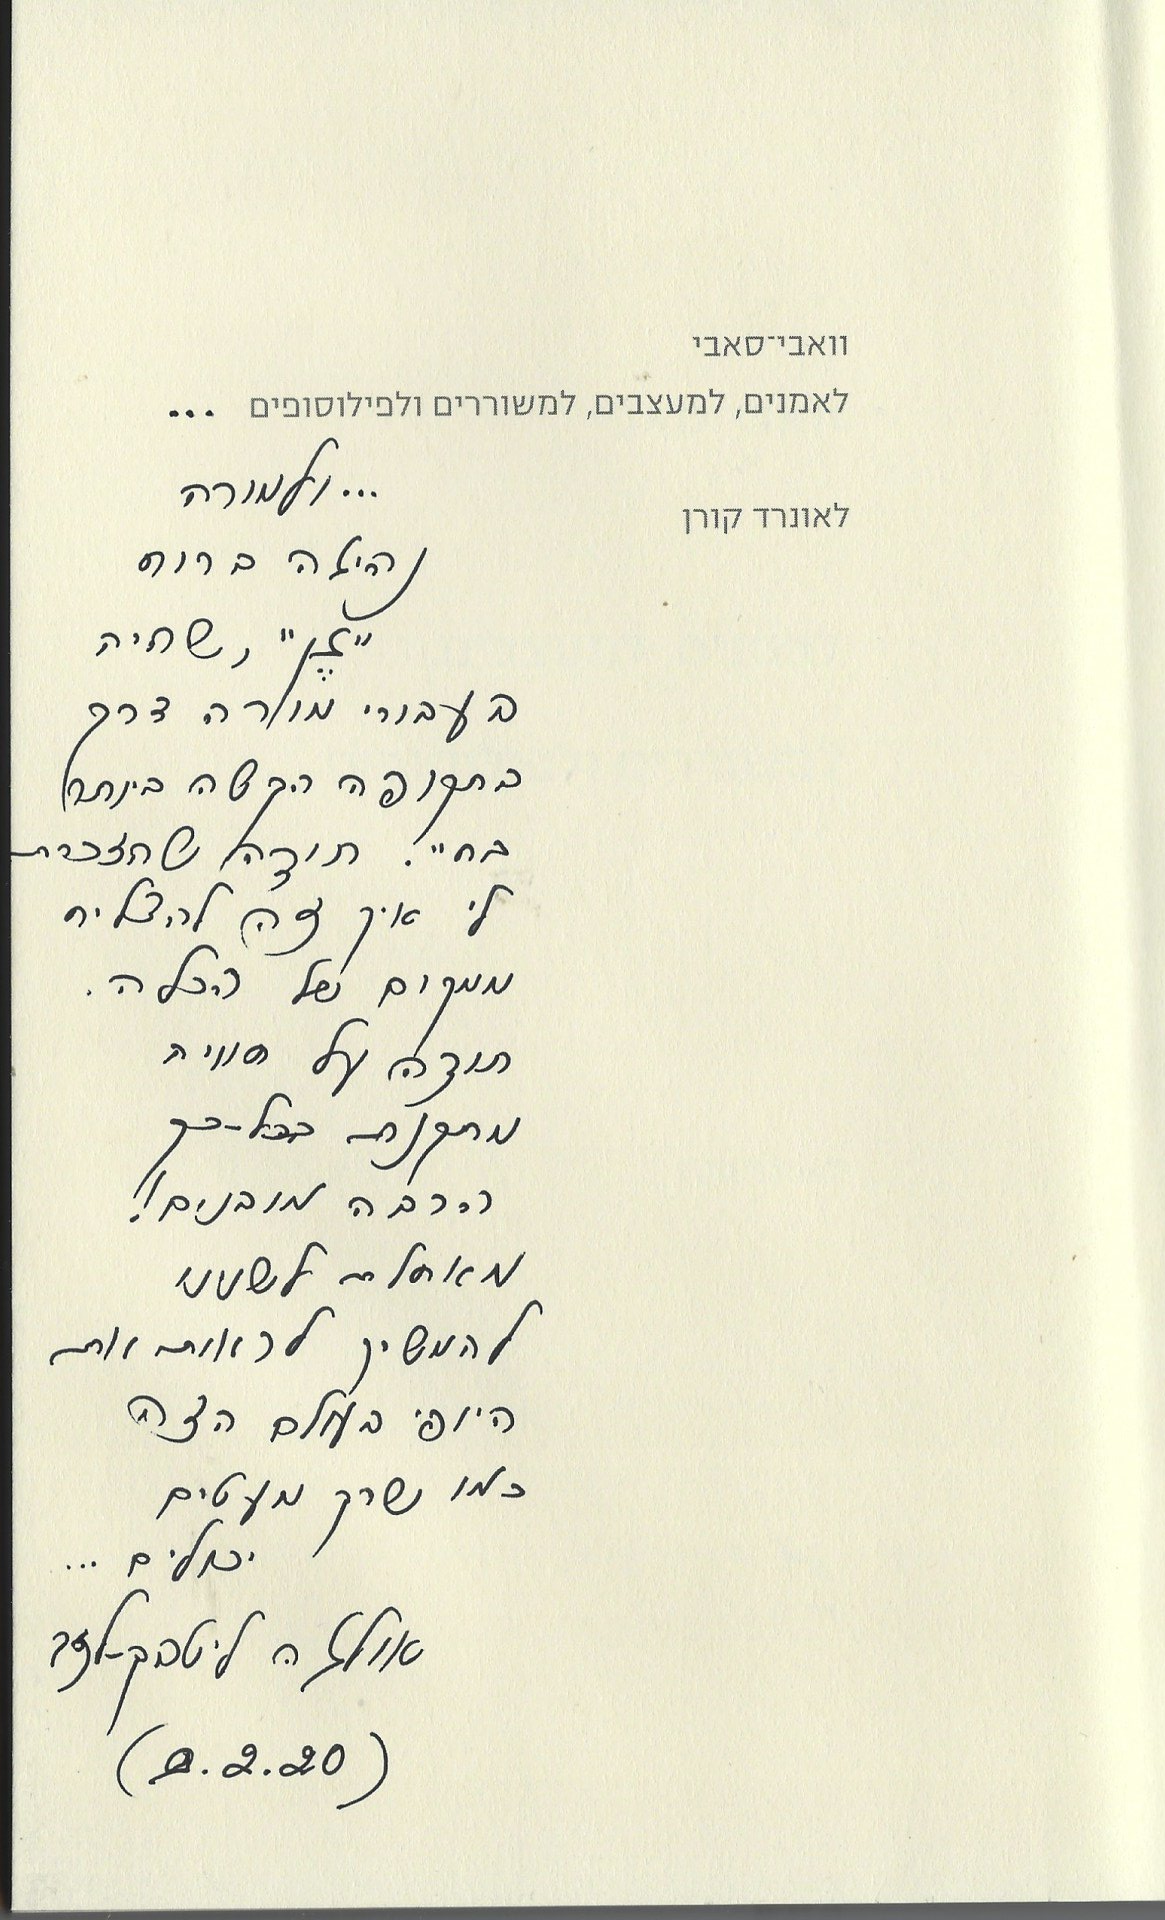 וואבי־סאבי
לאמנים, למעצבים, למשוררים ולפילוסופים ...
לאונרד קורן
...ולמורה
נהיגה ברוח
"זֶן", שהיה
בעבורי מורה דרך
בתקופה הקשה ביותר
בחיי. תודה שהזכרת
לי איך זה להצליח
ממקום של הכלה.
תודה על חוויה
מתקנת בכל-כך
הרבה מובנים!
מאחלת לשנינו
להמשיך לראות את
היופי בעולם הזה
כמו שרק מעטים
יכולים ...
אולגה ליטבק-לזר
(2.2.20)